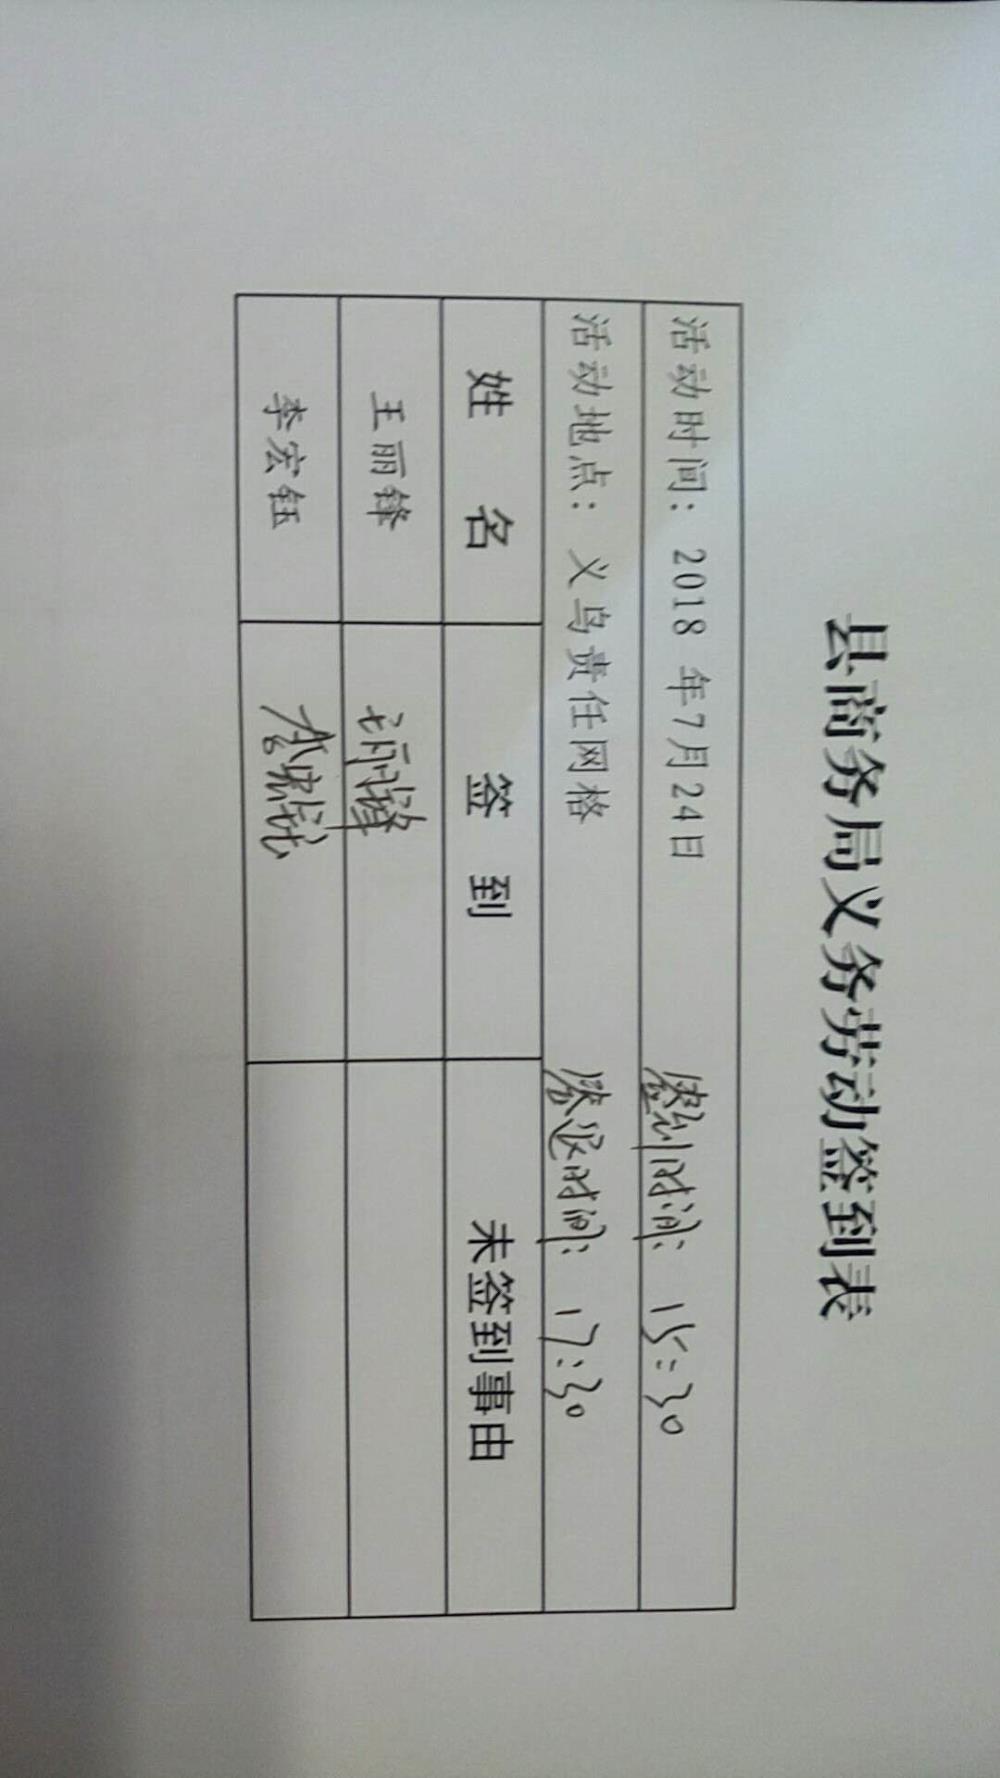 县商务局义务劳动签到表
活动时间：2018 年7月24日 签到时间：15:30
活动地点：义乌责任网格 签退时间：17:30
姓 名 签 到 未签到事由
王丽锋 王丽锋
李宏钰 李宏钰